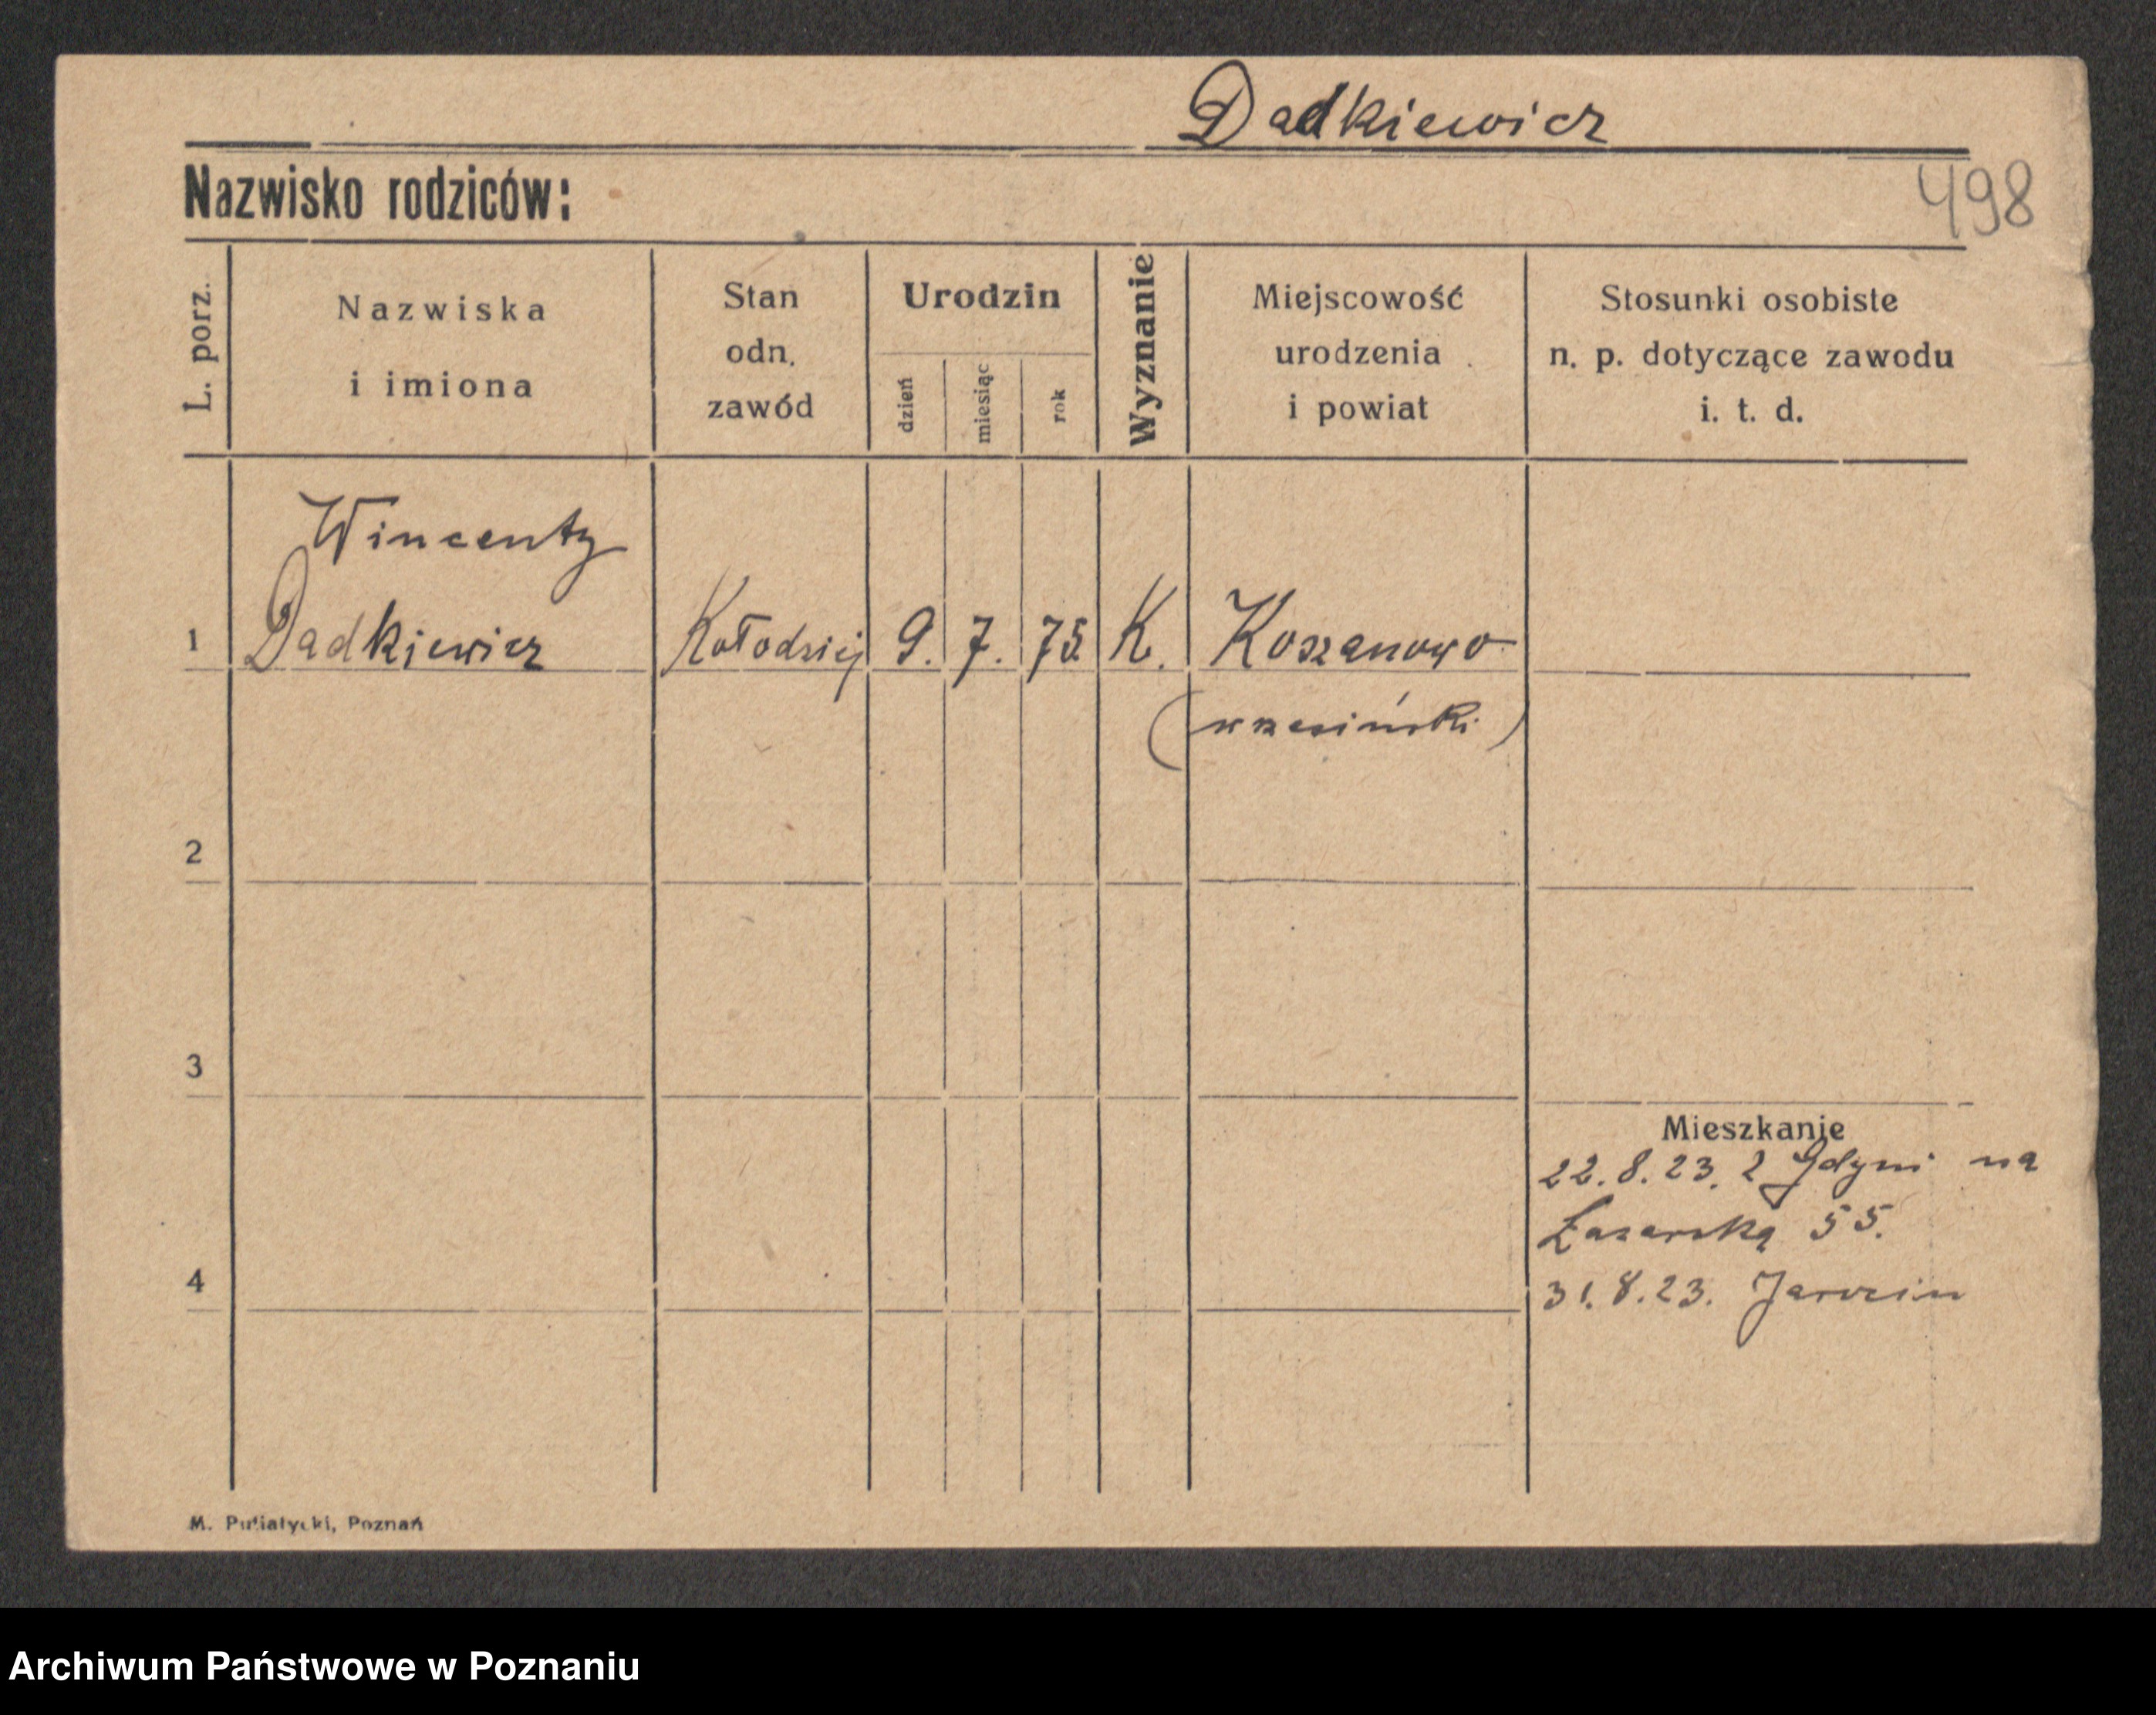 Dadkiewicz
Nazwisko rodziców:
498
L. porz.
Nazwiska
i imiona
Stan
odn.
zawód
Urodzin
dzień
miesiąc
rok
Wyznanie
Miejscowość
urodzenia
i powiat
Stosunki osobiste
n. p. dotyczące zawodu
i. t. d.
Wincenty
1 Dadkiewicz Kołodziej 9. 7. 75. K. Koszanowo
(wrzesiński)
2
3
Mieszkanie
22.8.23. z Gdyni na
Łazarską 55.
4
31.8.23. Jarocin
M. Putiatycki, Poznań
Archiwum Państwowe w Poznaniu